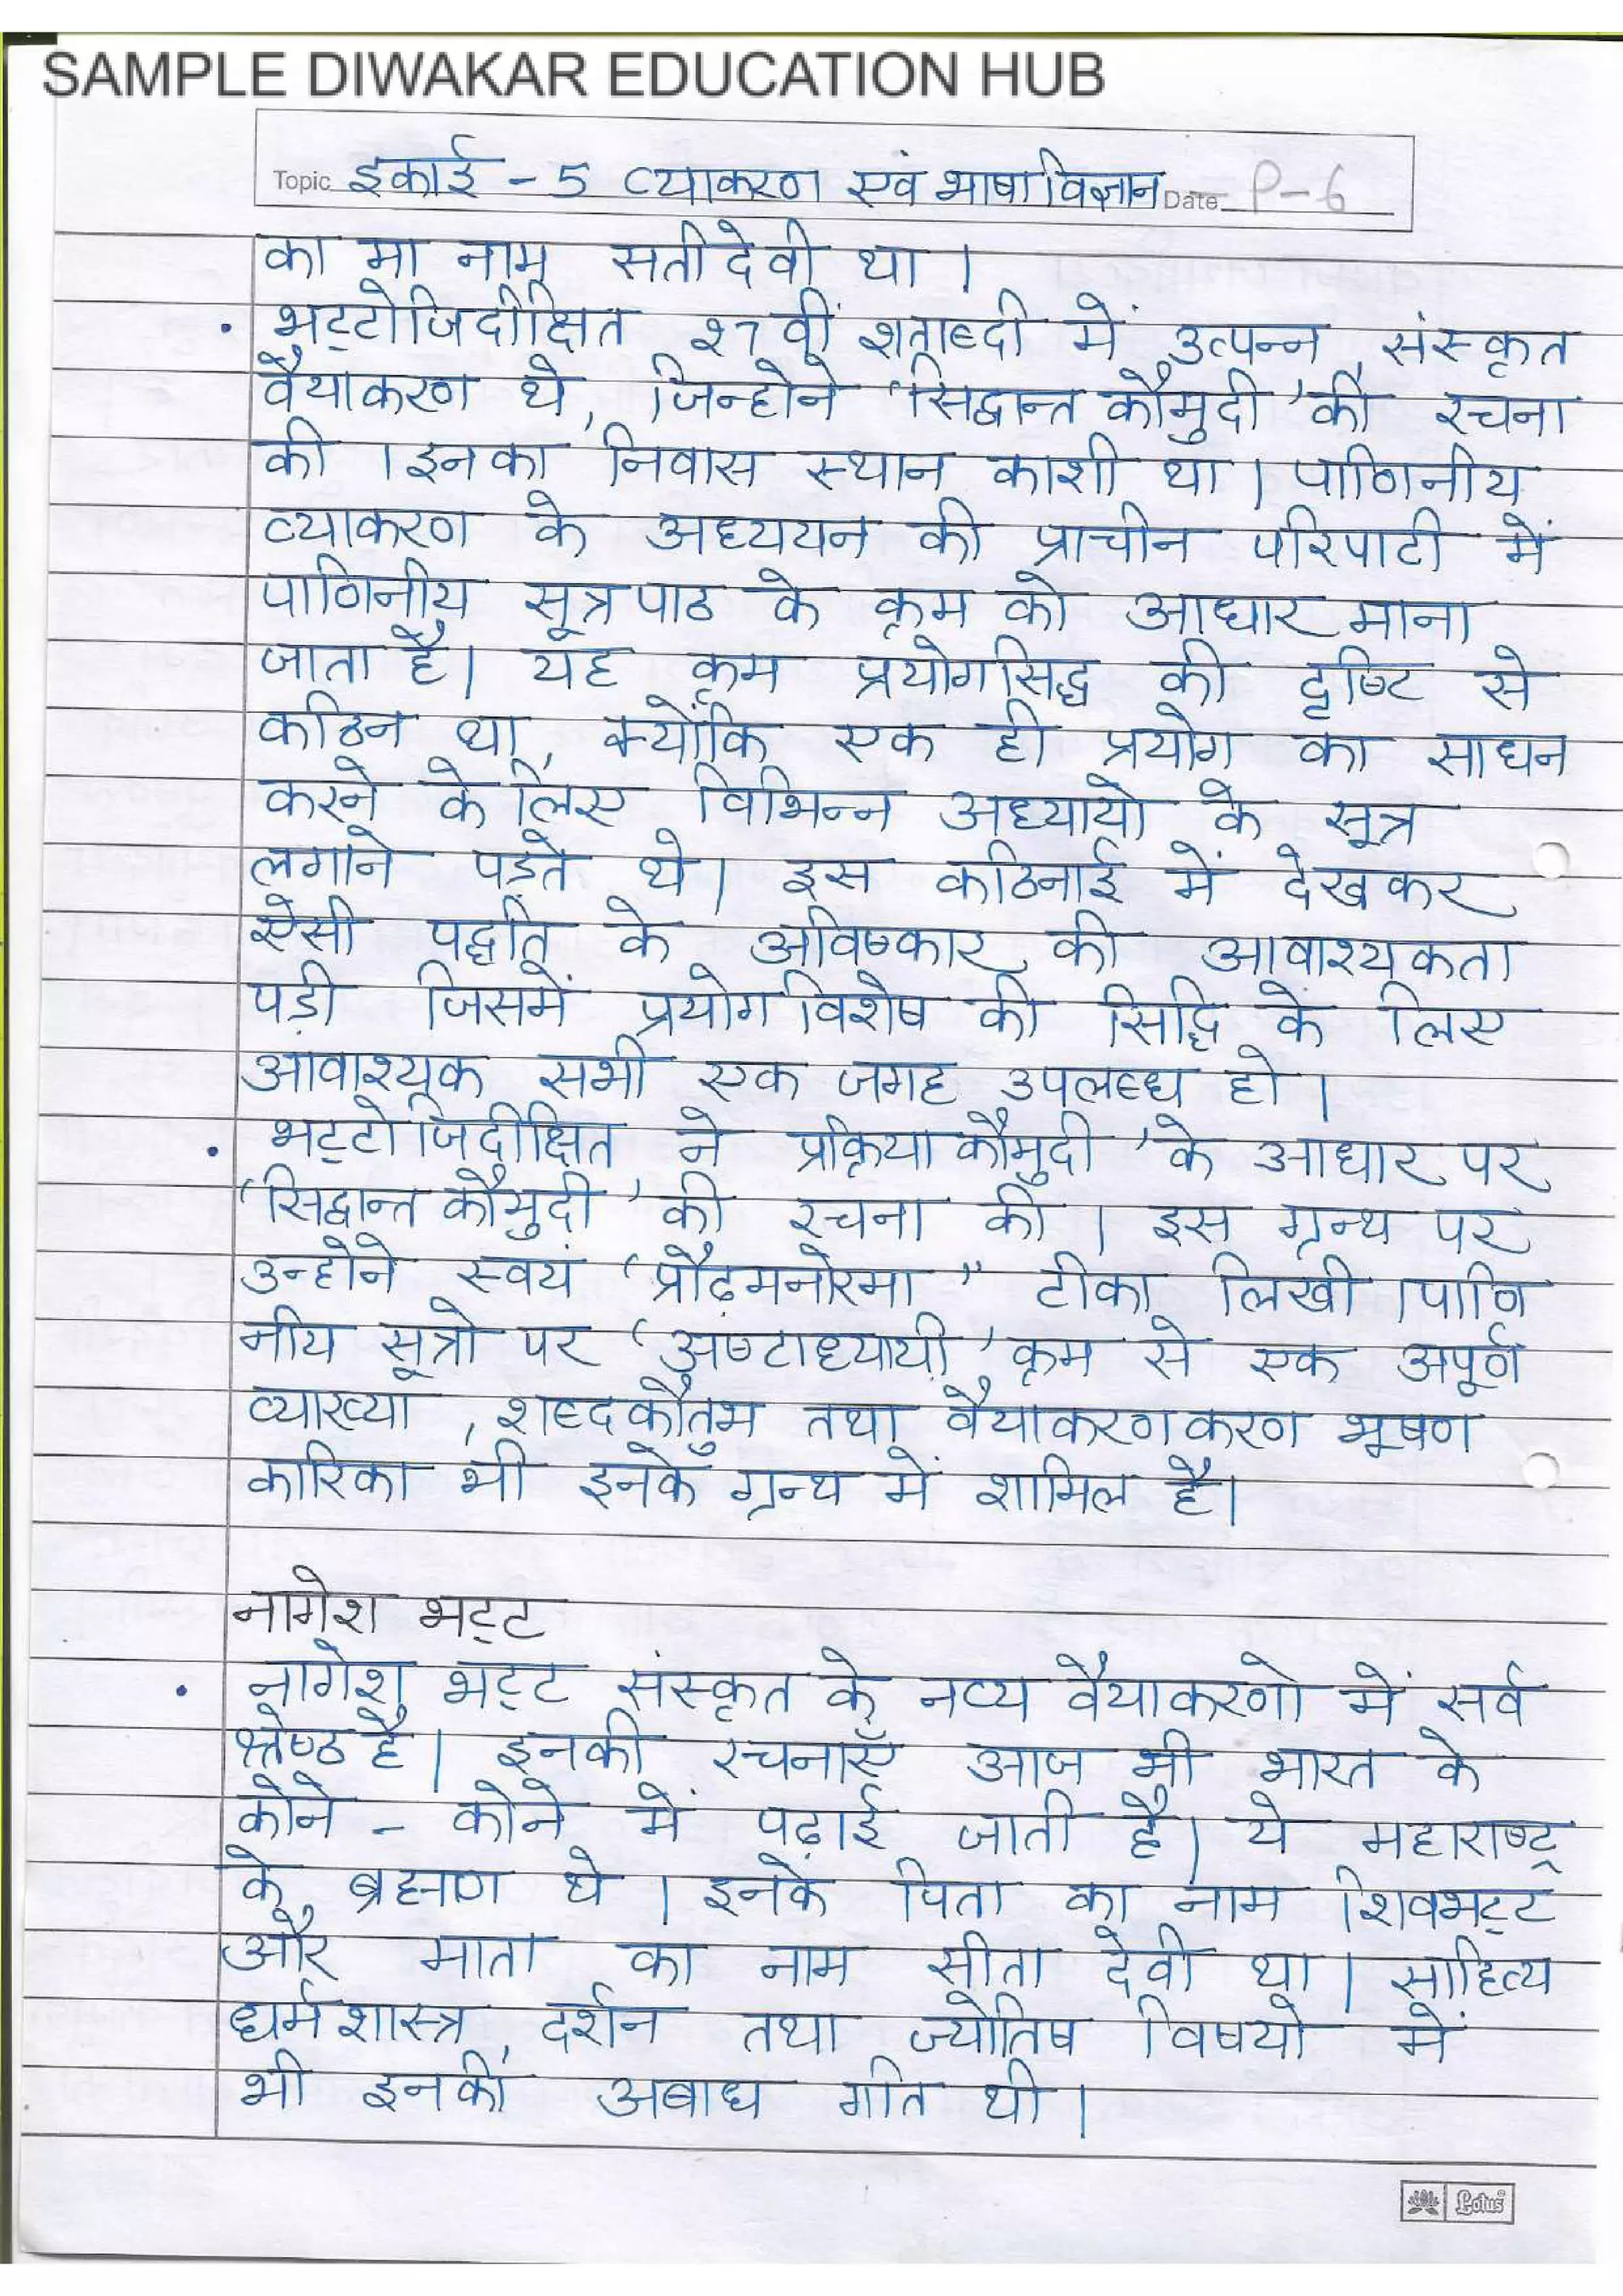 SAMPLE DIWAKAR EDUCATION HUB
Topic इकाई - 5 व्याकरण एवं भाषाविज्ञान Date P-6
का मा नाम सतीदेवी था।
• भट्टोजिदीक्षित १७ वीं शताब्दी में उत्पन्न संस्कृत
वैयाकरण थे, जिन्होने 'सिद्धान्त कौमुदी' की रचना
की। इनका निवास स्थान काशी था। पाणिनीय
व्याकरण के अध्ययन की प्राचीन परिपाटी में
पाणिनीय सूत्रपाठ के क्रम को आधार माना
जाता है। यह क्रम प्रयोगसिद्ध की दृष्टि से
कठिन था, क्योंकि एक ही प्रयोग का साधन
करने के लिए विभिन्न अध्यायो के सूत्र
लगाने पड़ते थे। इस कठिनाई में देखकर
ऐसी पद्धति के अविष्कार की आवाश्यकता
पड़ी जिसमें प्रयोगविशेष की सिद्धि के लिए
आवाश्यक सभी एक जगह उपलब्ध हो।
• भट्टोजिदीक्षित ने प्रक्रियाकौमुदी 'के आधार पर
'सिद्धान्त कौमुदी' की रचना की। इस ग्रन्थ पर
उन्होने स्वयं 'प्रौढ़मनोरमा" टीका लिखी। पाणि
नीय सूत्रो पर 'अष्टाध्यायी' क्रम से एक अपूर्ण
व्याख्या, शब्दकौतुभ तथा वैयाकरणकरण भूषण
कारिका भी इनके ग्रन्थ में शामिल है।
नागेश भट्ट
• नागेश भट्ट संस्कृत के नव्य वैयाकरणो में सर्व
श्रेष्ठ है। इनकी रचनाएँ आज भी भारत के
कोने - कोने में पढ़ाई जाती है। ये महाराष्ट्र
के ब्रह्मण थे। इनके पिता का नाम शिवभट्ट
और माता का नाम सीता देवी था। साहित्य
धर्मशास्त्र, दर्शन तथा ज्योतिष विषयो में
भी इनकी अबाध गति थी।
Lotus